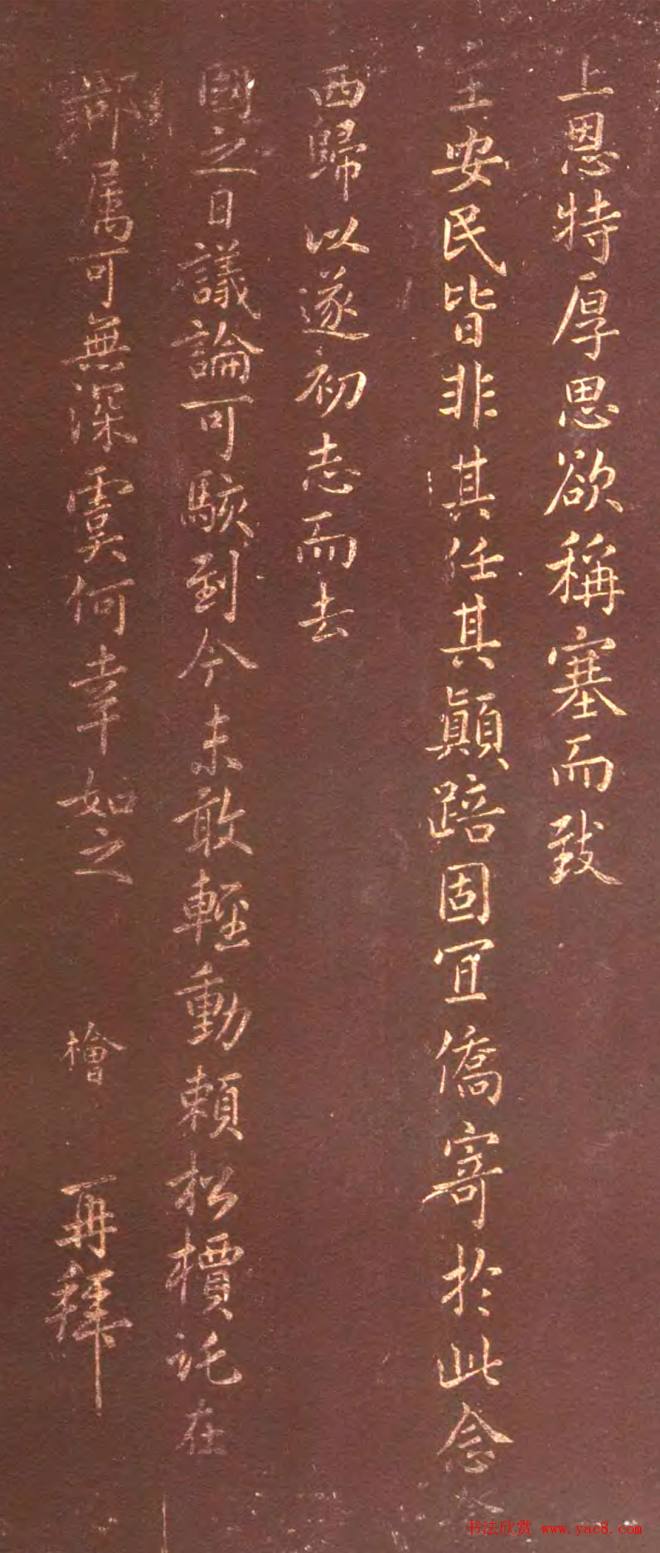 上恩特厚思欲稱塞而致
主安民皆非其任其顛踣固宜僑寄於此念
西歸以遂初志而去
國之日議論可駭到今未敢輕動賴松檟託在
鄰属可無深虞何幸如之 檜 再拜
书法欣赏 www.yac8.com